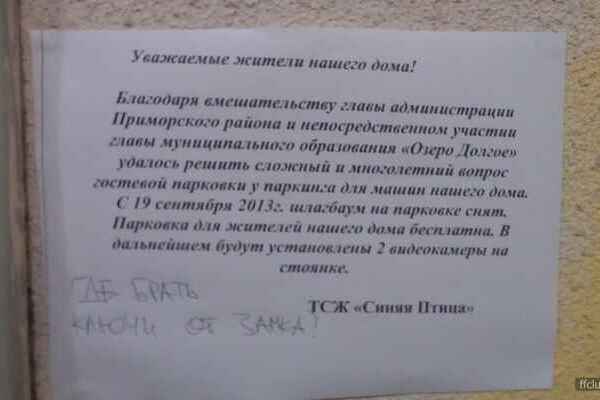 Уважаемые жители нашего дома!
Благодаря вмешательству главы администрации
Приморского района и непосредственном участии
главы муниципального образования «Озеро Долгое»
удалось решить сложный и многолетний вопрос
гостевой парковки у паркинга для машин нашего дома.
С 19 сентября 2013г. шлагбаум на парковке снят.
Парковка для жителей нашего дома бесплатна. В
дальнейшем будут установлены 2 видеокамеры на
стоянке.
ТСЖ «Синяя Птица»
ГДЕ БРАТЬ
КЛЮЧИ ОТ ЗАМКА?
ffclu